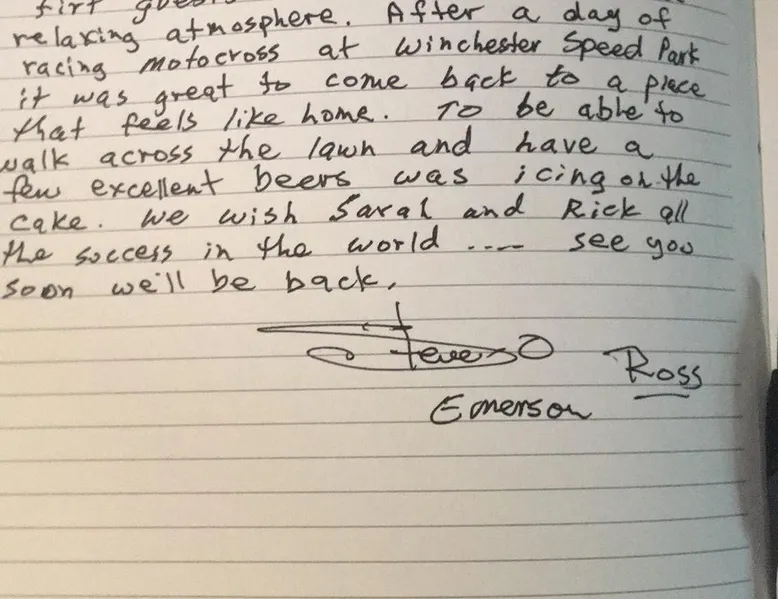 firt
relaxing atmosphere. After a day of
racing motocross at Winchester Speed Park
it was great to come back to a place
that feels like home. To be able to
walk across the lawn and have a
few excellent beers was icing on the
cake. We wish Sarah and Rick all
the success in the world .... see you
soon we'll be back.
Steve Ross
Emerson